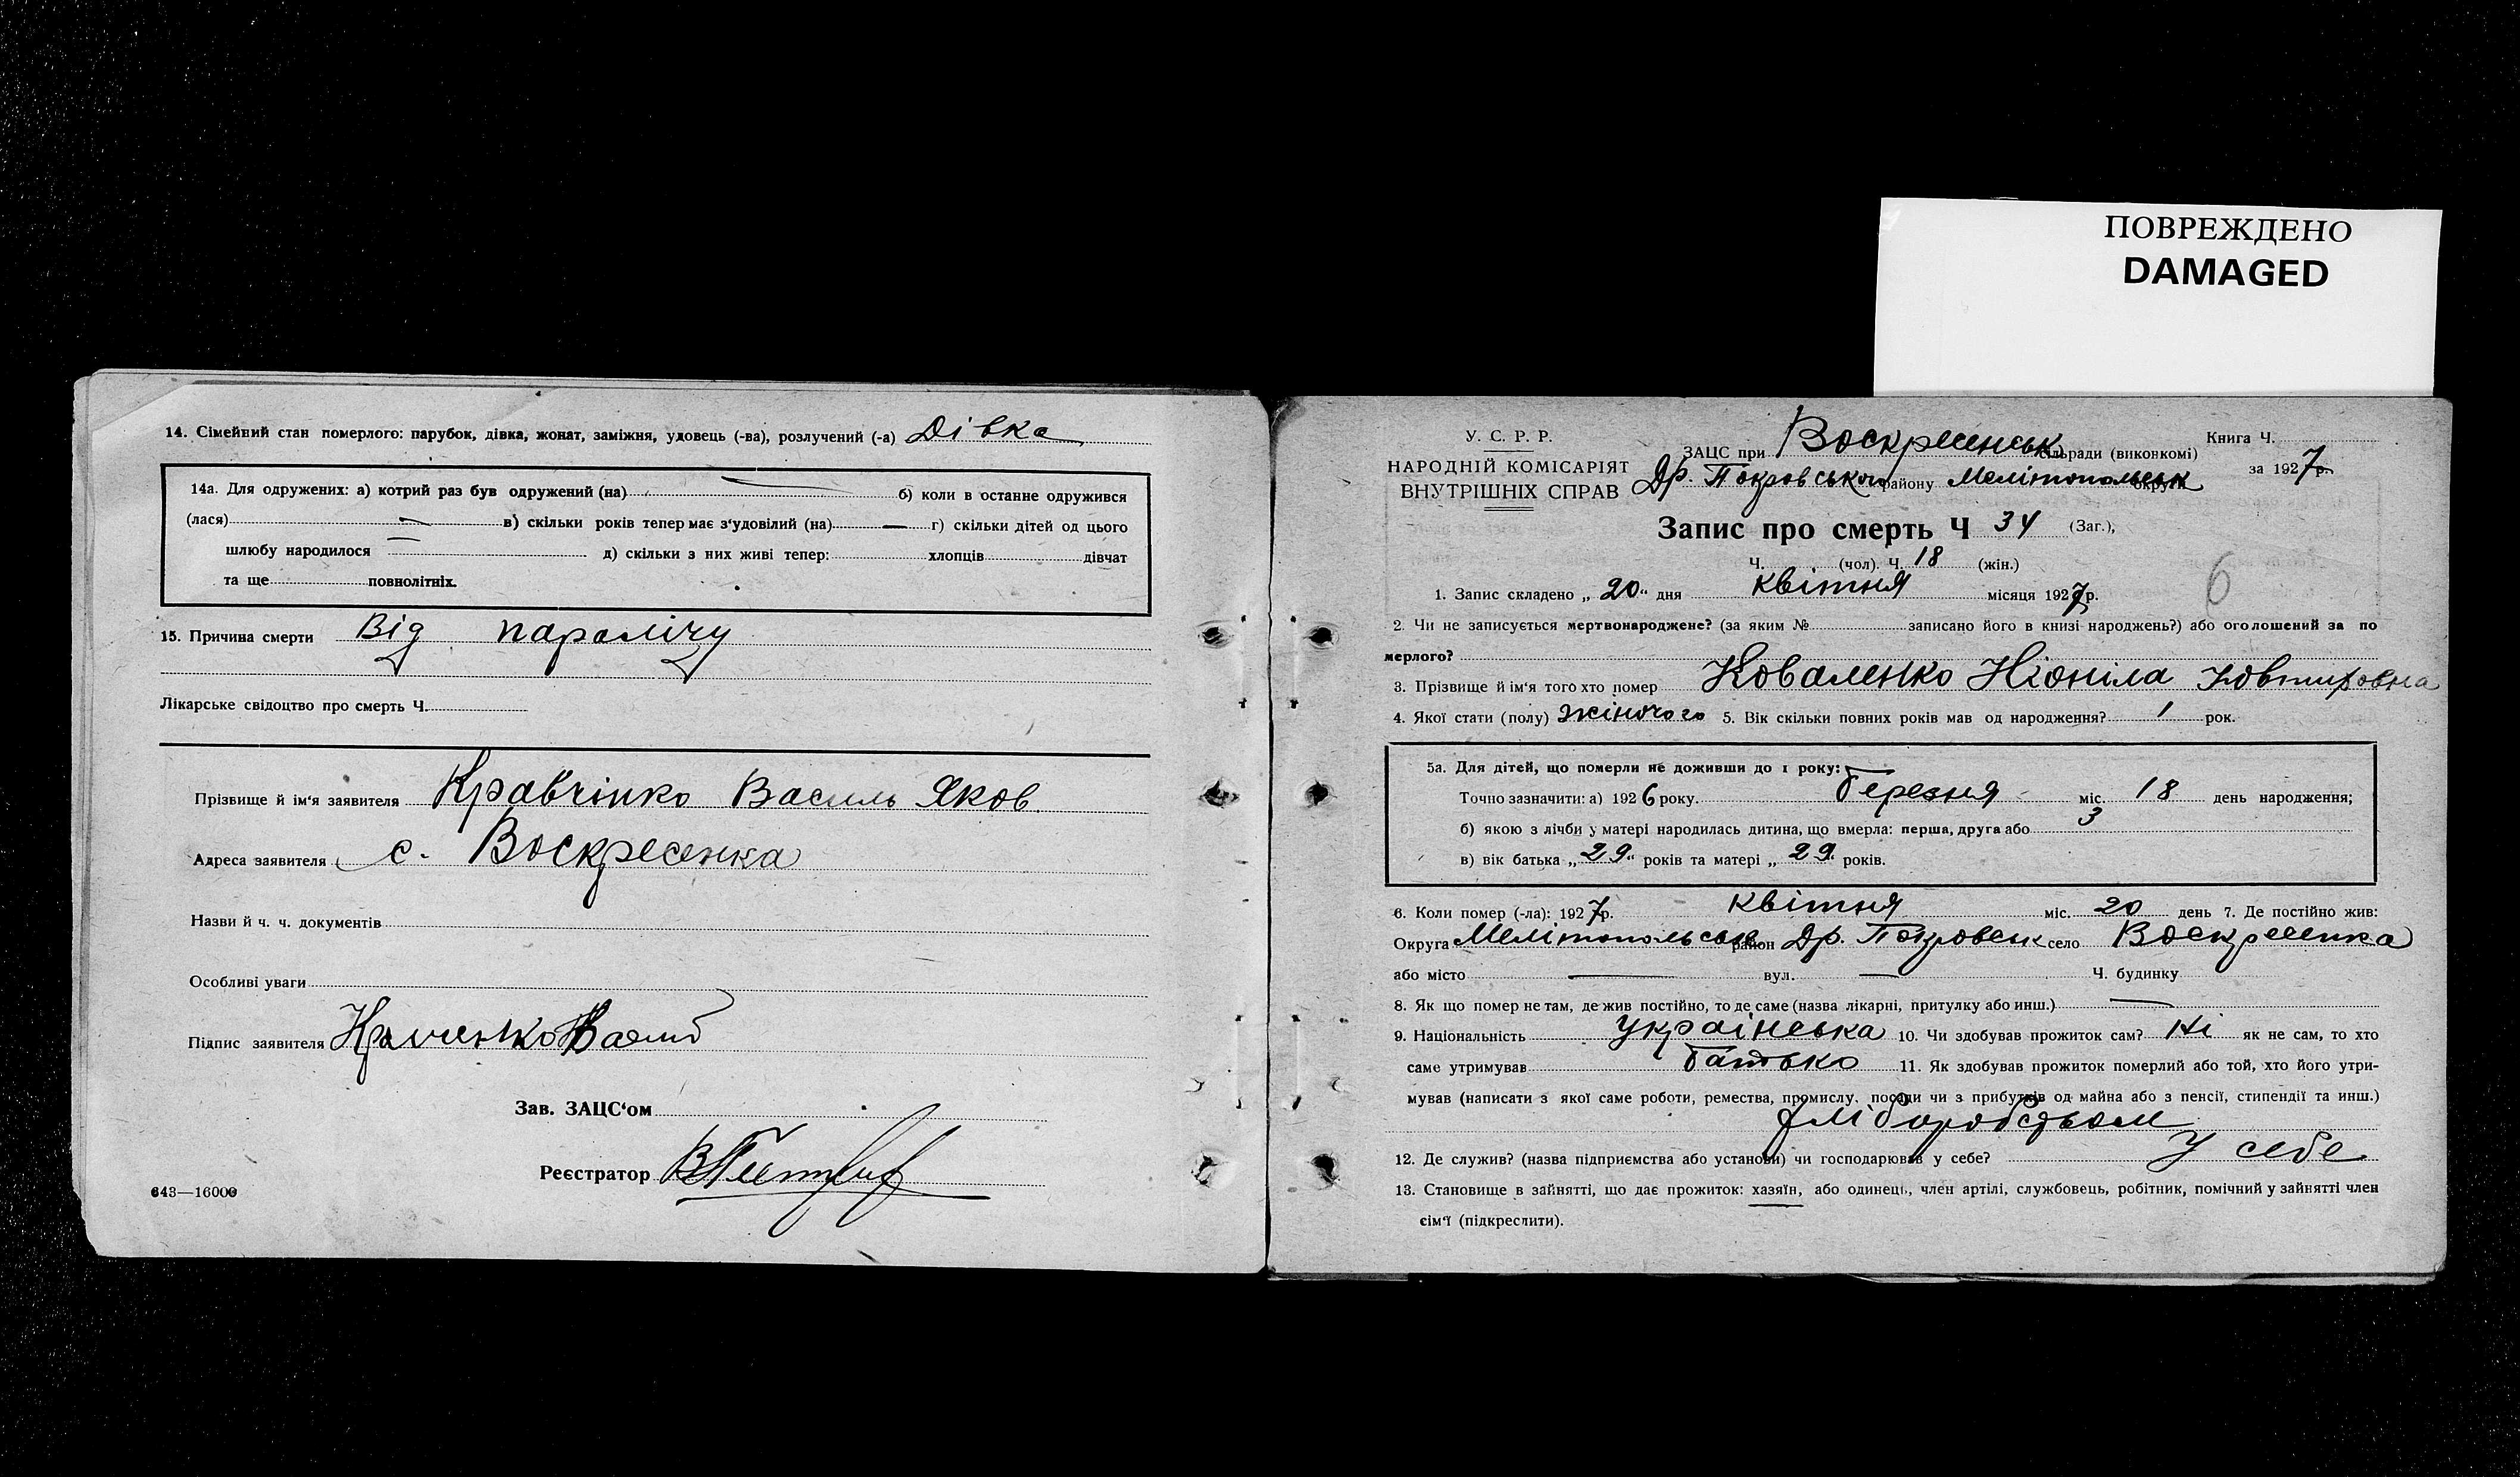 ПОВРЕЖДЕНО
DAMAGED
14. Сімейний стан померлого: парубок, дівка, жонат, заміжня, удовець (-ва), розлучений (-а) Дівка
14а. Для одружених: а) котрий раз був одружений (на) — б) коли в останне одружився
(лася) — в) скільки років тепер має з'удовілий (на) — г) скільки дітей од цього
шлюбу народилося — д) скільки з них живі тепер: хлопців дівчат
та ще повнолітніх.
15. Причина смерти Від паралічу
Лікарське свідоцтво про смерть Ч.
Прізвище й ім'я заявителя Кравчінко Василь Яков.
Адреса заявителя с. Воскресенка
Назви й ч. ч. документів
Особливі уваги
Підпис заявителя
Зав. ЗАЦС'ом
Реєстратор
643—16000
У. С. Р. Р.
НАРОДНІЙ КОМІСАРІЯТ
ВНУТРІШНІХ СПРАВ
ЗАЦС при Воскресенськ сільради (виконкомі)
Др. Покровського району Мелітопольськ округи
Книга Ч.
за 1927 р.
Запис про смерть Ч 34 (Заг.),
Ч. (чол). Ч. 18 (жін.)
1. Запис складено „ 20 “ дня квітня місяця 1927 р.
6
2. Чи не записується мертвонароджене? (за яким № записано його в книзі народжень?) або оголошений за по
мерлого?
3. Прізвище й ім'я того хто помер Коваленко Ніоніла
4. Якої стати (полу) жіночого 5. Вік скільки повних років мав од народження? 1 рок.
5а. Для дітей, що померли не доживши до 1 року:
Точно зазначити: а) 1926 року. березня міс. 18 день народження;
б) якою з лічби у матері народилась дитина, що вмерла: перша, друга або 3
в) вік батька „ 29 “ років та матері „ 29 “ років.
6. Коли помер (-ла): 1927 р. квітня міс. 20 день 7. Де постійно жив:
Округа Мелітопольськ район Др. Покровськ село Воскресенка
або місто — вул. — Ч. будинку
8. Як що помер не там, де жив постійно, то де саме (назва лікарні, притулку або инш.) —
9. Національність українська 10. Чи здобував прожиток сам? Ні як не сам, то хто
саме утримував батько 11. Як здобував прожиток померлий або той, хто його утри-
мував (написати з якої саме роботи, ремества, промислу, посади чи з прибутків од майна або з пенсії, стипендії та инш.)
12. Де служив? (назва підприємства або установи) чи господарював у себе? У себе
13. Становище в зайнятті, що дає прожиток: хазяїн, або одинець, член артілі, службовець, робітник, помічний у зайнятті член
сім'ї (підкреслити).